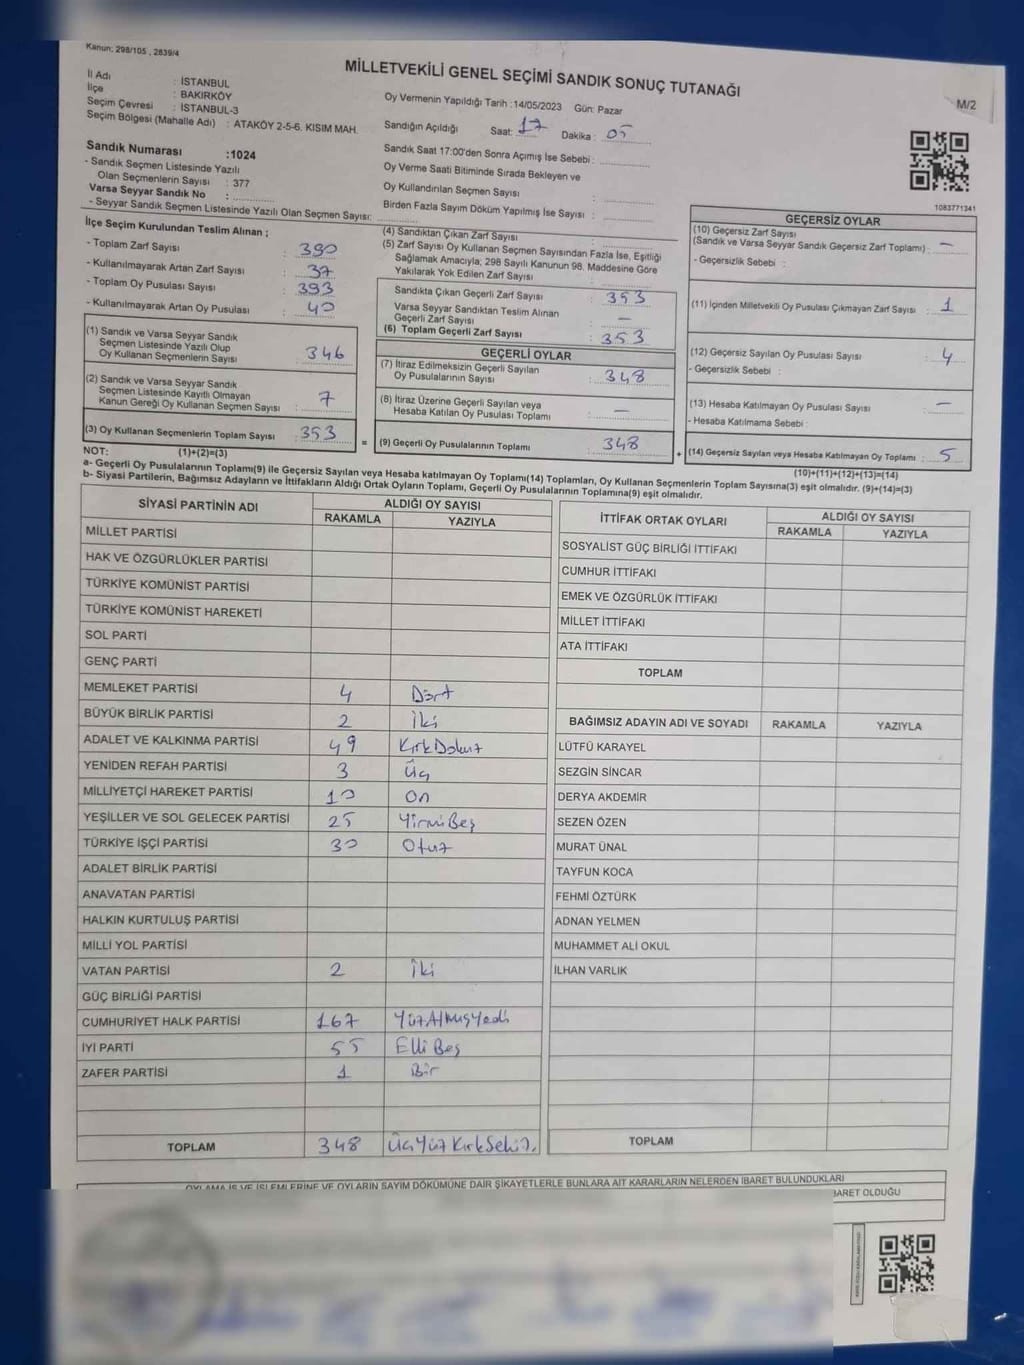 Kanun: 298/105 , 2839/4
MİLLETVEKİLİ GENEL SEÇİMİ SANDIK SONUÇ TUTANAĞI
M/2
İl Adı : İSTANBUL
İlçe : BAKIRKÖY
Seçim Çevresi : İSTANBUL-3
Seçim Bölgesi (Mahalle Adı) : ATAKÖY 2-5-6. KISIM MAH.
Oy Vermenin Yapıldığı Tarih :14/05/2023 Gün: Pazar
Sandığın Açıldığı Saat: 17 Dakika : 05
Sandık Saat 17:00'den Sonra Açımış İse Sebebi :
Oy Verme Saati Bitiminde Sırada Bekleyen ve
Oy Kullandırılan Seçmen Sayısı :
Birden Fazla Sayım Döküm Yapılmış İse Sayısı :
1083771341
Sandık Numarası :1024
- Sandık Seçmen Listesinde Yazılı
Olan Seçmenlerin Sayısı : 377
Varsa Seyyar Sandık No :
- Seyyar Sandık Seçmen Listesinde Yazılı Olan Seçmen Sayısı:
İlçe Seçim Kurulundan Teslim Alınan ;
- Toplam Zarf Sayısı : 390
- Kullanılmayarak Artan Zarf Sayısı : 37
- Toplam Oy Pusulası Sayısı : 393
- Kullanılmayarak Artan Oy Pusulası : 40
(1) Sandık ve Varsa Seyyar Sandık
Seçmen Listesinde Yazılı Olup
Oy Kullanan Seçmenlerin Sayısı : 346
(2) Sandık ve Varsa Seyyar Sandık
Seçmen Listesinde Kayıtlı Olmayan
Kanun Gereği Oy Kullanan Seçmen Sayısı : 7
(3) Oy Kullanan Seçmenlerin Toplam Sayısı : 353
(1)+(2)=(3)
(4) Sandıktan Çıkan Zarf Sayısı :
(5) Zarf Sayısı Oy Kullanan Seçmen Sayısından Fazla İse, Eşitliği
Sağlamak Amacıyla; 298 Sayılı Kanunun 98. Maddesine Göre
Yakılarak Yok Edilen Zarf Sayısı :
Sandıkta Çıkan Geçerli Zarf Sayısı : 353
Varsa Seyyar Sandıktan Teslim Alınan
Geçerli Zarf Sayısı : –
(6) Toplam Geçerli Zarf Sayısı : 353
GEÇERLİ OYLAR
(7) İtiraz Edilmeksizin Geçerli Sayılan
Oy Pusulalarının Sayısı : 348
(8) İtiraz Üzerine Geçerli Sayılan veya
Hesaba Katılan Oy Pusulası Toplamı : –
= (9) Geçerli Oy Pusulalarının Toplamı : 348
GEÇERSİZ OYLAR
(10) Geçersiz Zarf Sayısı
(Sandık ve Varsa Seyyar Sandık Geçersiz Zarf Toplamı) : –
- Geçersizlik Sebebi :
(11) İçinden Milletvekili Oy Pusulası Çıkmayan Zarf Sayısı : 1
(12) Geçersiz Sayılan Oy Pusulası Sayısı : 4
- Geçersizlik Sebebi :
(13) Hesaba Katılmayan Oy Pusulası Sayısı : –
- Hesaba Katılmama Sebebi :
+ (14) Geçersiz Sayılan veya Hesaba Katılmayan Oy Toplamı : 5
(10)+(11)+(12)+(13)=(14)
NOT:
a- Geçerli Oy Pusulalarının Toplamı(9) ile Geçersiz Sayılan veya Hesaba katılmayan Oy Toplamı(14) Toplamları, Oy Kullanan Seçmenlerin Toplam Sayısına(3) eşit olmalıdır. (9)+(14)=(3)
b- Siyasi Partilerin, Bağımsız Adayların ve İttifakların Aldığı Ortak Oyların Toplamı, Geçerli Oy Pusulalarının Toplamına(9) eşit olmalıdır.
SİYASİ PARTİNİN ADI ALDIĞI OY SAYISI
RAKAMLA YAZIYLA
MİLLET PARTİSİ
HAK VE ÖZGÜRLÜKLER PARTİSİ
TÜRKİYE KOMÜNİST PARTİSİ
TÜRKİYE KOMÜNİST HAREKETİ
SOL PARTİ
GENÇ PARTİ
MEMLEKET PARTİSİ 4 Dört
BÜYÜK BİRLİK PARTİSİ 2 İki
ADALET VE KALKINMA PARTİSİ 49 KırkDokuz
YENİDEN REFAH PARTİSİ 3 Üç
MİLLİYETÇİ HAREKET PARTİSİ 10 On
YEŞİLLER VE SOL GELECEK PARTİSİ 25 YirmiBeş
TÜRKİYE İŞÇİ PARTİSİ 30 Otuz
ADALET BİRLİK PARTİSİ
ANAVATAN PARTİSİ
HALKIN KURTULUŞ PARTİSİ
MİLLİ YOL PARTİSİ
VATAN PARTİSİ 2 İki
GÜÇ BİRLİĞİ PARTİSİ
CUMHURİYET HALK PARTİSİ 167 YüzAltmışYedi
İYİ PARTİ 55 Elli Beş
ZAFER PARTİSİ 1 Bir
TOPLAM 348 ÜçYüzKırkSekiz.
İTTİFAK ORTAK OYLARI ALDIĞI OY SAYISI
RAKAMLA YAZIYLA
SOSYALİST GÜÇ BİRLİĞİ İTTİFAKI
CUMHUR İTTİFAKI
EMEK VE ÖZGÜRLÜK İTTİFAKI
MİLLET İTTİFAKI
ATA İTTİFAKI
TOPLAM
BAĞIMSIZ ADAYIN ADI VE SOYADI RAKAMLA YAZIYLA
LÜTFÜ KARAYEL
SEZGİN SİNCAR
DERYA AKDEMİR
SEZEN ÖZEN
MURAT ÜNAL
TAYFUN KOCA
FEHMİ ÖZTÜRK
ADNAN YELMEN
MUHAMMET ALİ OKUL
İLHAN VARLIK
TOPLAM
OYLAMA İŞ VE İŞLEMLERİNE VE OYLARIN SAYIM DÖKÜMÜNE DAİR ŞİKAYETLERLE BUNLARA AİT KARARLARIN NELERDEN İBARET BULUNDUKLARI
İBARET OLDUĞU